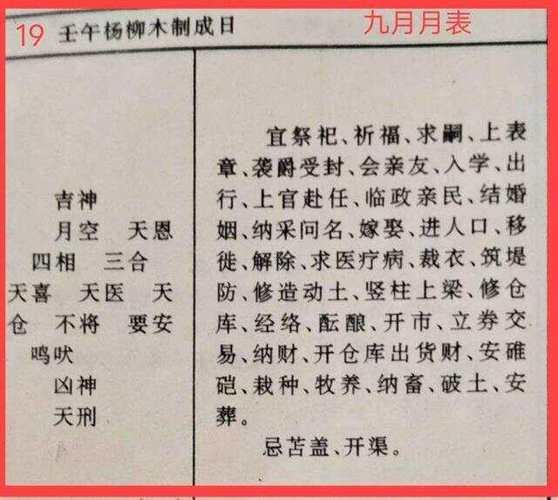 19 壬午杨柳木制成日 九月月表
吉神
月空 天恩
四相 三合
天喜 天医 天
仓 不将 要安
鸣吠
凶神
天刑
宜祭祀、祈福、求嗣、上表
章、袭爵受封、会亲友、入学、出
行、上官赴任、临政亲民、结婚
姻、纳采问名、嫁娶、进人口、移
徙、解除、求医疗病、裁衣、筑堤
防、修造动土、竖柱上梁、修仓
库、经络、酝酿、开市、立券交
易、纳财、开仓库出货财、安碓
硙、栽种、牧养、纳畜、破土、安
葬。
忌苫盖、开渠。